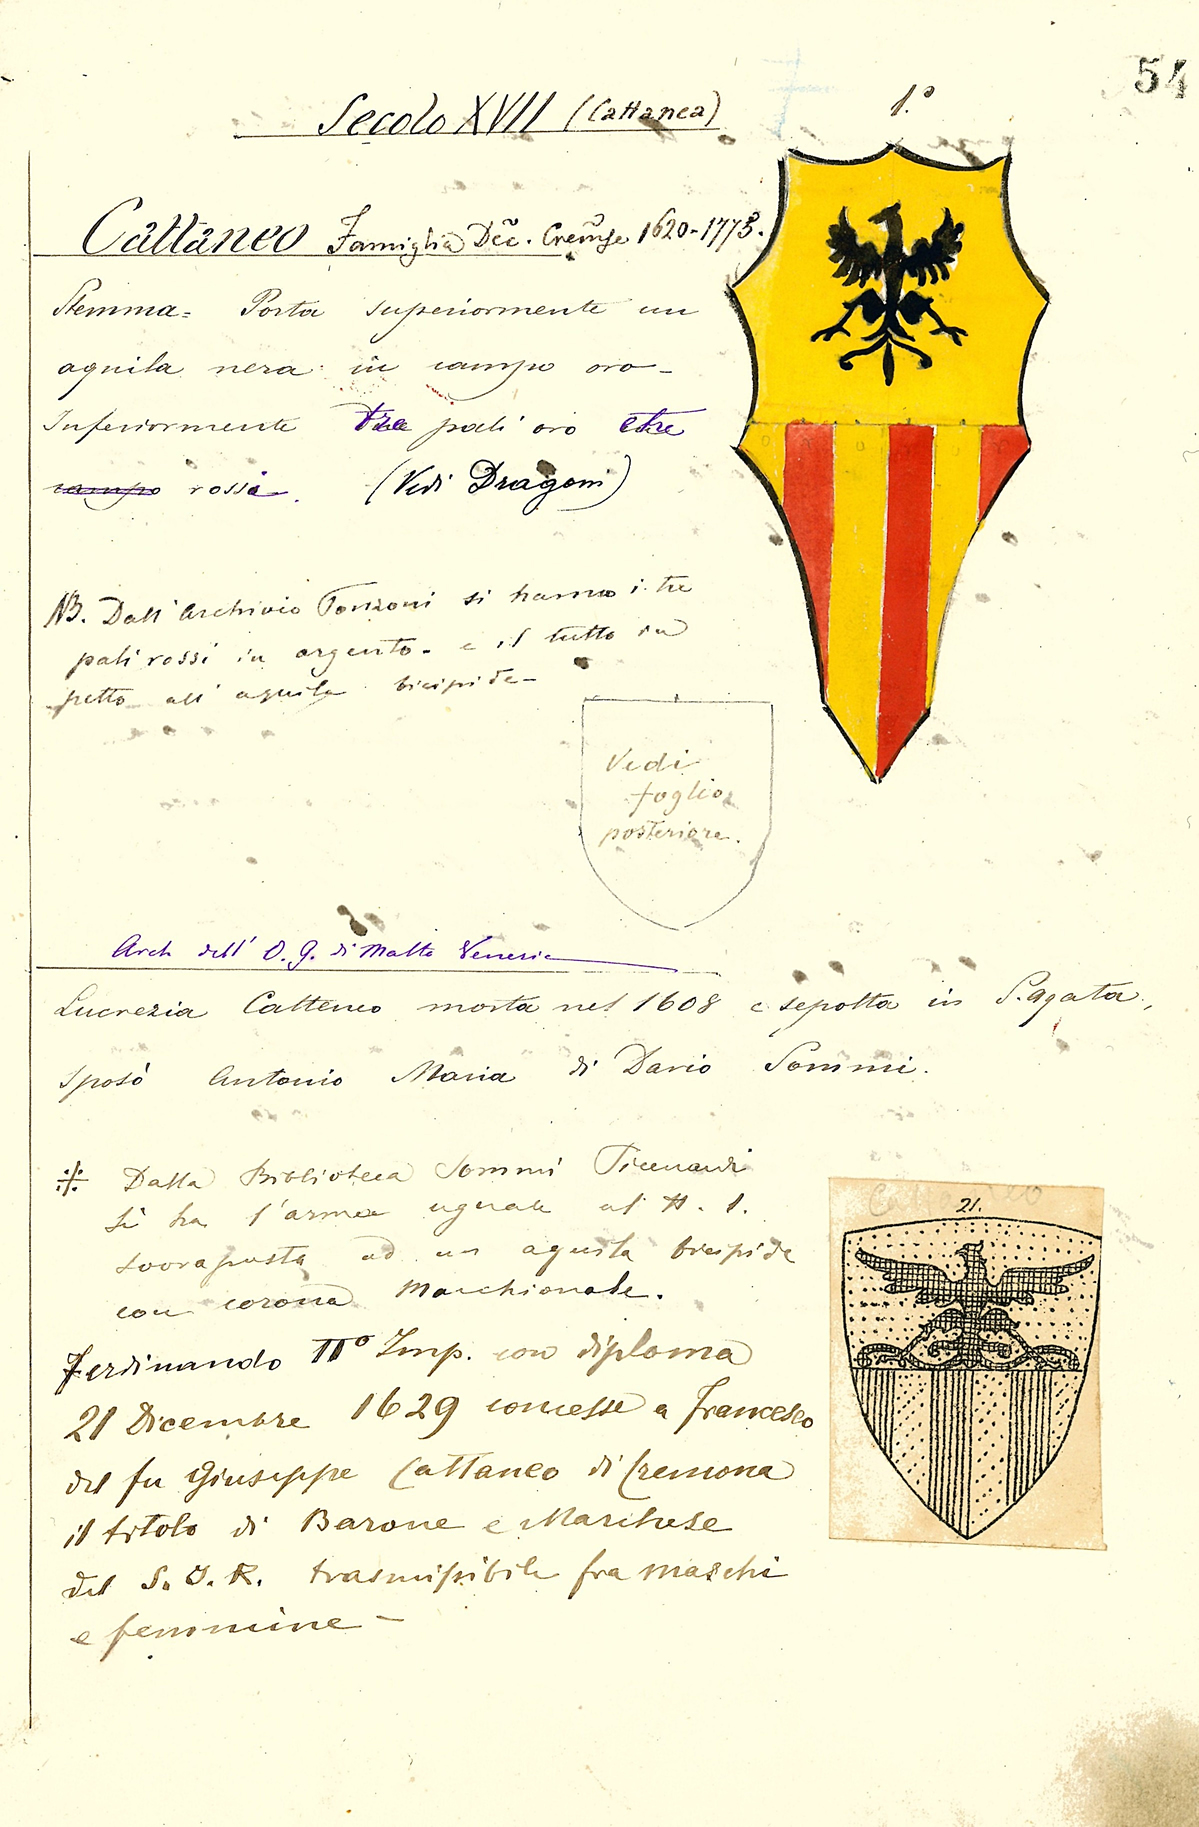 54
Secolo XVII (Cattanea)
1.º
Cattaneo Famiglia Dec. Cremse 1620-1773.
Stemma = Porta superiormente un
aquila nera in campo oro -
Inferiormente tre pali oro e tre
campo rossi. (Vedi Dragoni)
NB. Dall'Archivio Tonsoni si hanno i tre
pali rossi in argento - e il tutto in
petto all'aquila bicipide -
Vedi
foglio
posteriore.
Arch dell' O. G. di Malta Venezia
Lucrezia Catteneo morta nel 1608 e sepolta in S. Agata,
sposò Antonio Maria di Dario Sommi.
Dalla Biblioteca Sommi Picenardi
si ha l'arma uguale al N. 1.
sovraposta ad un aquila bicipide
con corona Marchionale.
Cattaneo
21.
Ferdinando IIº Imp. con diploma
21 Dicembre 1629 concesse a Francesco
del fu Giuseppe Cattaneo di Cremona
il titolo di Barone e Marchese
del S. I. R. trasmissibile fra maschi
e femmine -